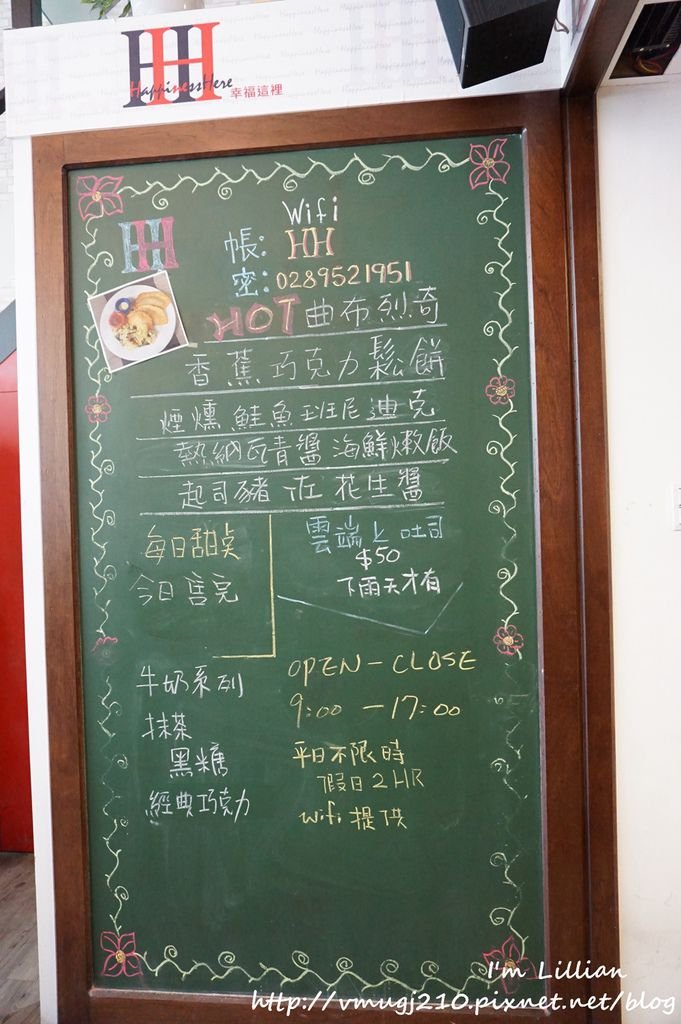 HH
HappinessHere 幸福這裡
Wifi
HH
帳: HH
密: 0289521951
HOT 曲布列奇
香蕉巧克力鬆餅
煙燻鮭魚班尼迪克
熱納瓦青醬海鮮燉飯
起司豬佐花生醬
每日甜點
今日售完
雲端上吐司
$50
下雨天才有
牛奶系列
抹茶
黑糖
經典巧克力
OPEN - CLOSE
9:00 - 17:00
平日不限時
假日2HR
wifi 提供
I'm Lillian
http://vmugj210.pixnet.net/blog